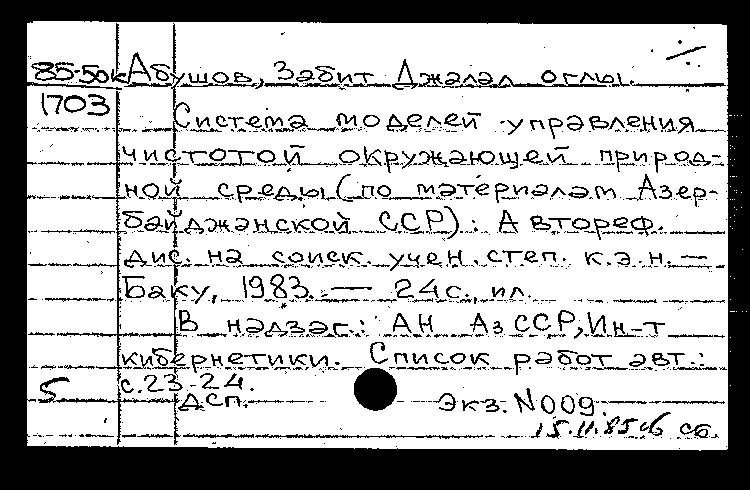 85-50к Абушов, Забит Джалал оглы.
1703
Система моделей управления
чистотой окружающей природ-
ной среды (по материалам Азер-
байджанской ССР): Автореф.
дис. на соиск. учен. степ. к.э.н. —
Баку, 1983. — 24с., ил.
В надзаг.: АН АзССР, Ин-т
кибернетики. Список работ авт.:
с.23-24.
5 ДСП. Экз. N009.
15.11.85 сб.